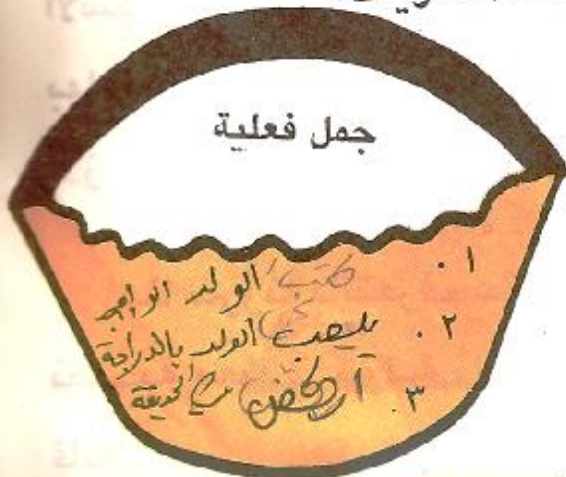 جمل فعلية
١. كتب الولد الواجب
٢. يلعب الولد بالدراجة
٣. أركض في الحديقة